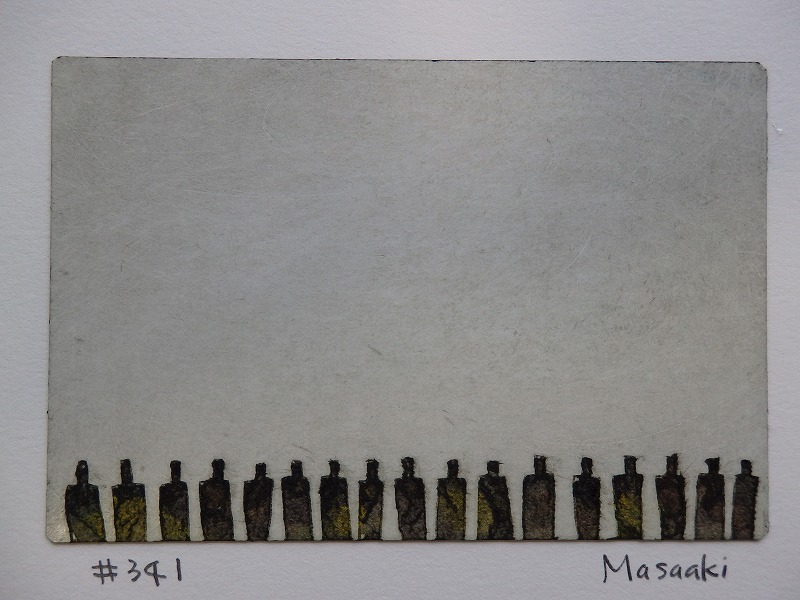 #341
Masaaki